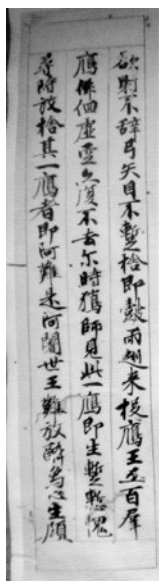 欲射不辞弓矢目不暫捨即鼓兩翅来投鴈王五百群
鴈徘徊虛空亦復不去尒時獵師見此一鴈即生慙愧
尋時放捨其一鴈者即阿難是阿闍世王難放醉象心生顧